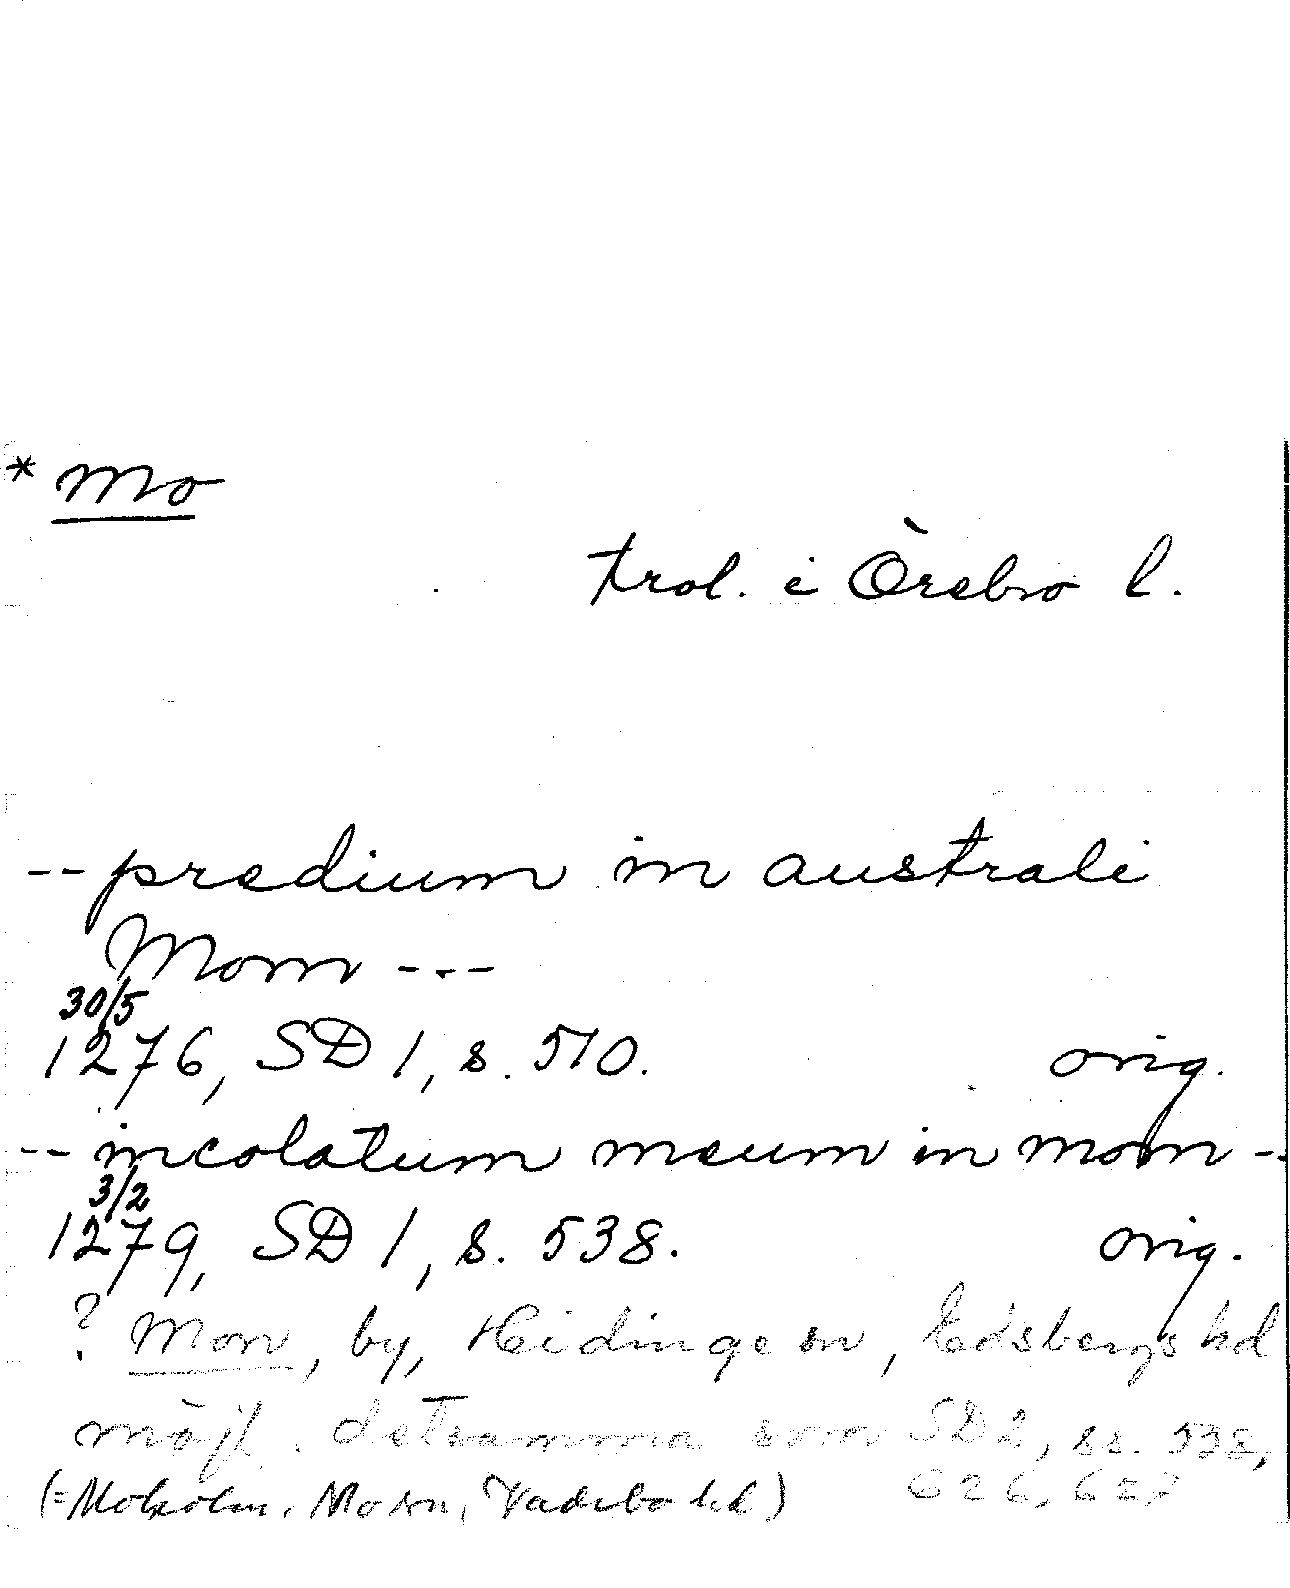 * Mo
trol. i Örebro l.
-- predium in australi
Mom ---
30/5
1276, SD 1, s. 510. orig.
-- incolatum meum in mom --
3/2
1279, SD 1, s. 538. orig.
? Mon, by, Hidinge sn, Edsbergs hd
möjl. detsamma som SD 2, ss. 538,
626, 627
(= Moholm, Mo sn, Vadsbo hd)